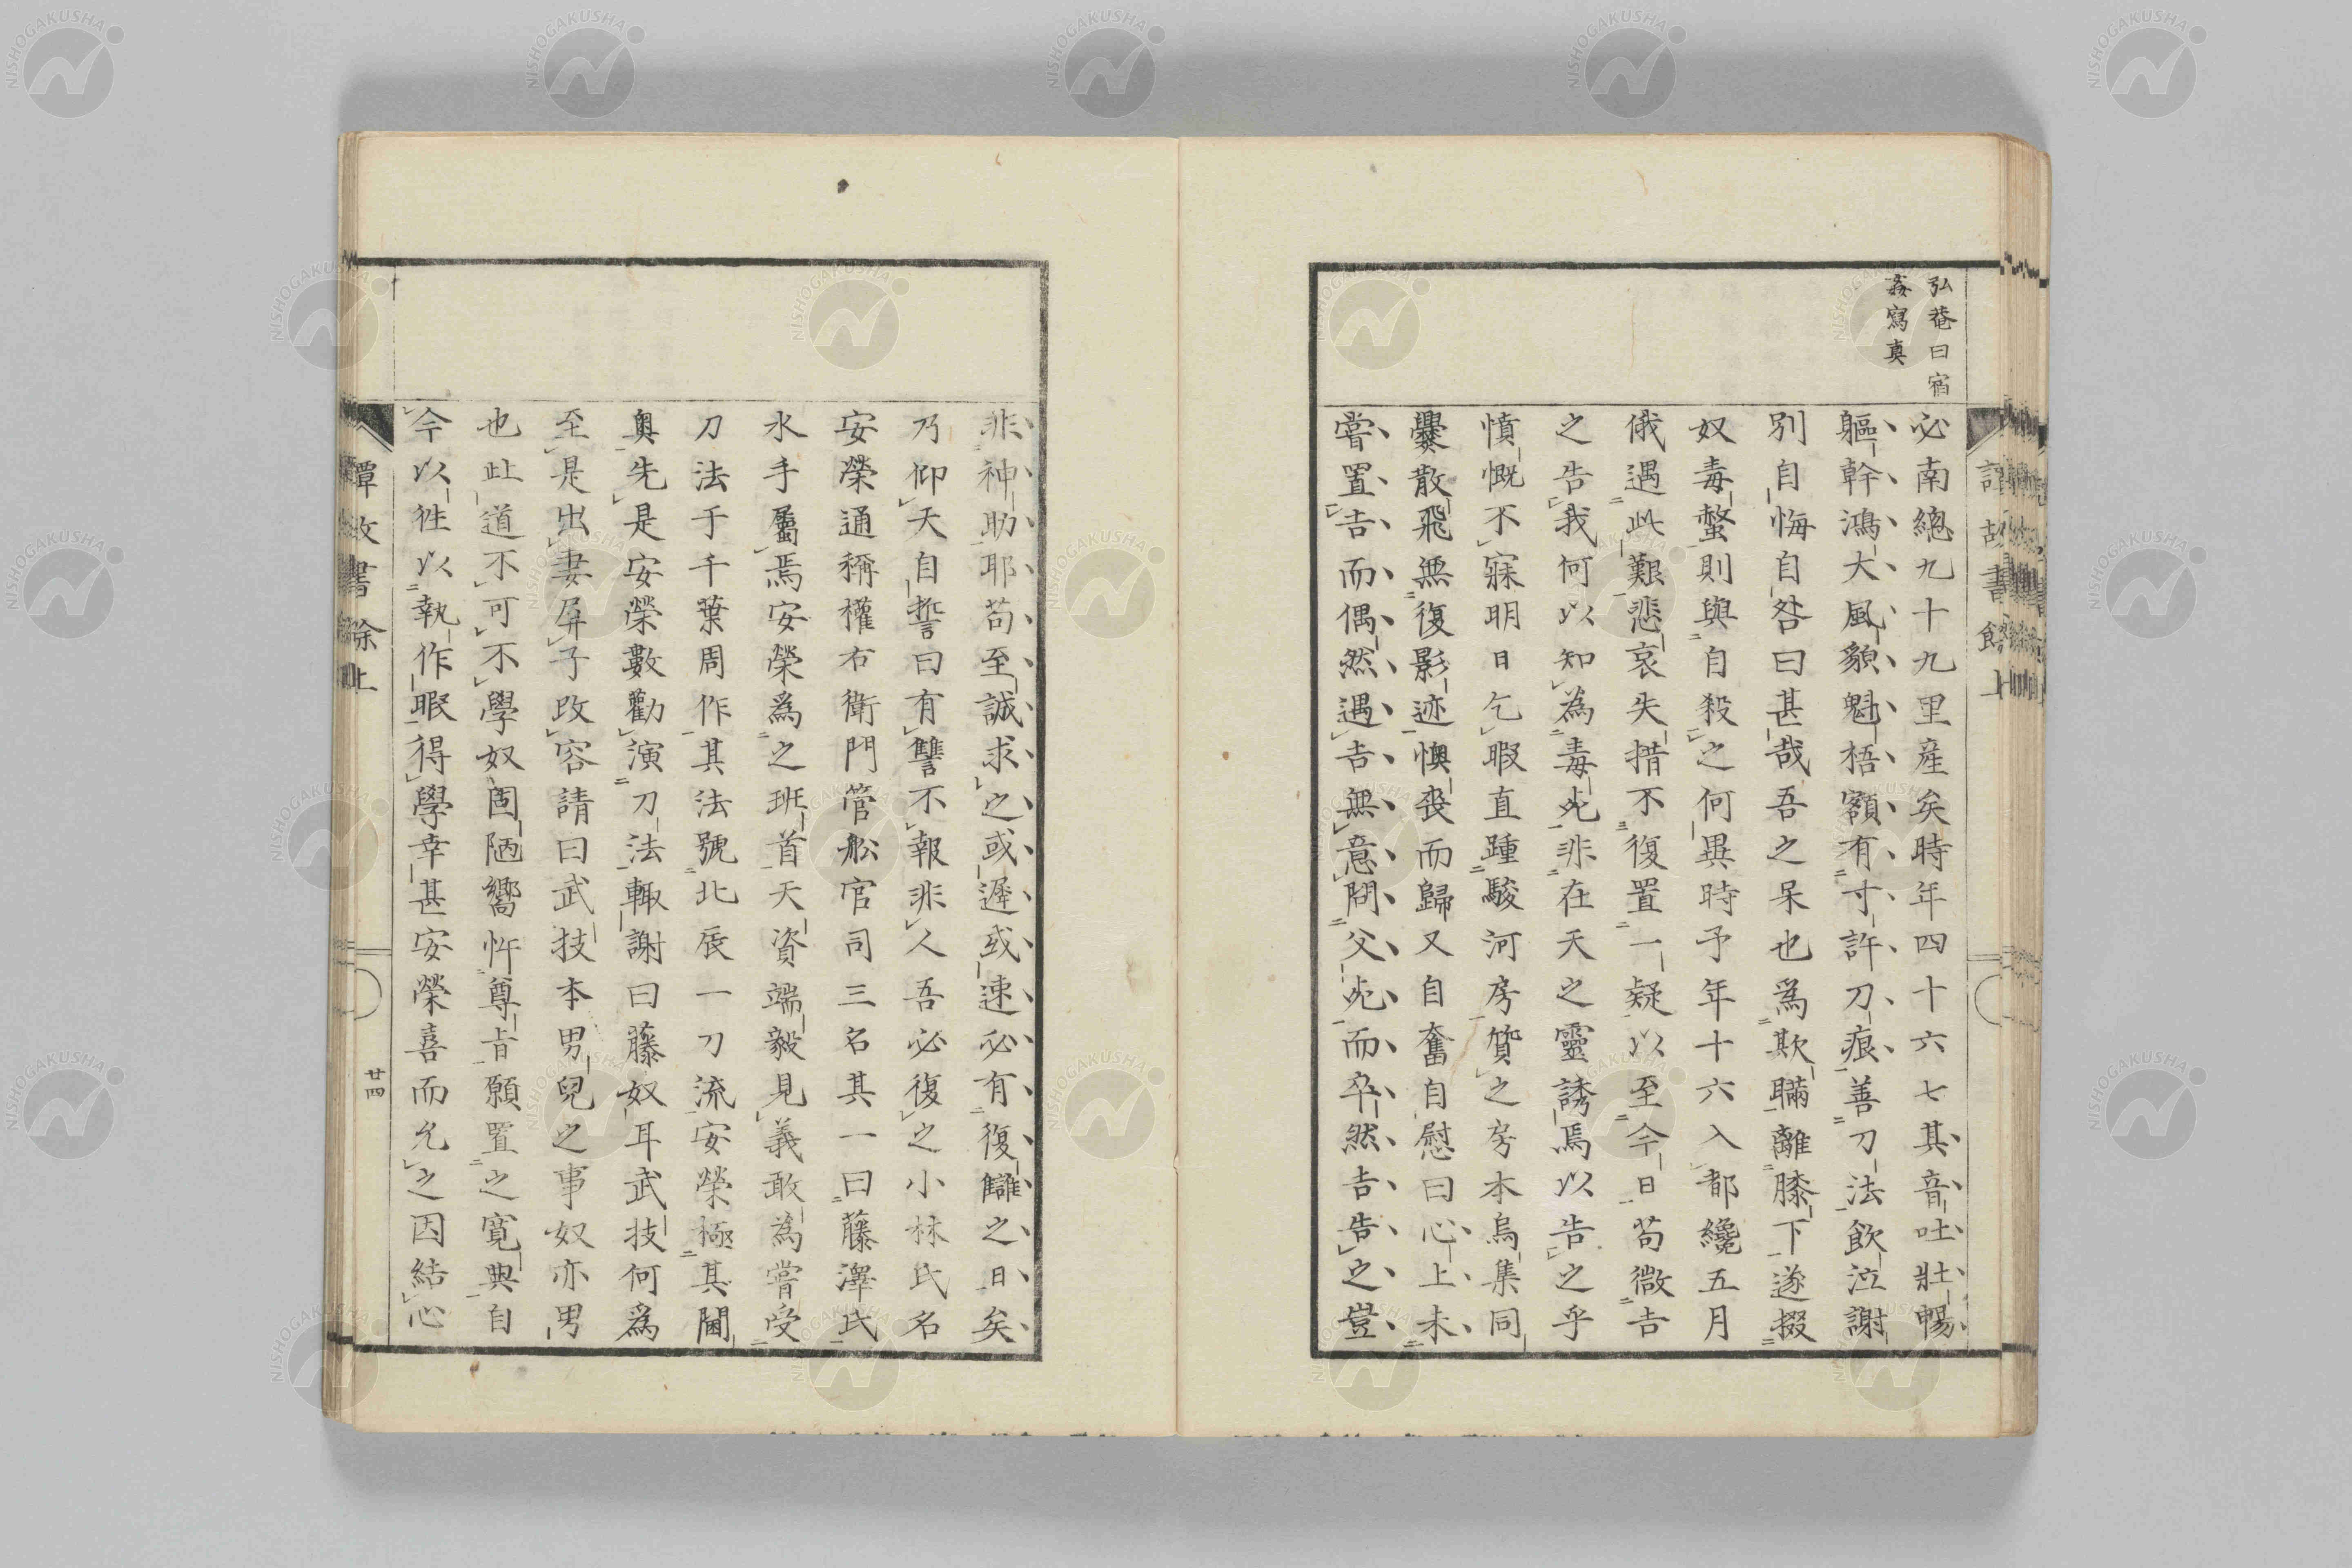 弘菴曰宿
姦寫真
必南總九十九里産矣時年四十六七其音吐壯暢
軀幹鴻大風貌魁梧額有寸許刀痕善刀法飲泣謝
別自悔自咎曰甚哉吾之呆也爲欺瞞離膝下遂掇
奴毒螫則與自殺之何異時予年十六入都纔五月
俄遇此艱悲哀失措不復置一疑以至今日苟微吉
之告我何以知為毒死非在天之靈誘焉以告之乎
憤慨不寐明日乞暇直踵駿河房質之房本烏集同
爨散飛無復影迹懊喪而歸又自奮自慰曰心上未
嘗置吉而偶然遇吉無意問父死而卒然吉告之豈
非神助耶苟至誠求之或遲或速必有復讎之日矣
乃仰天自誓曰有讐不報非人吾必復之小林氏名
安榮通稱權右衛門管船官司三名其一曰藤澤氏
水手屬焉安榮爲之班首天資端毅見義敢為嘗受
刀法于千葉周作其法號北辰一刀流安榮極其閫
奥先是安榮數勸演刀法輙謝曰藤奴耳武技何爲
至是出妻屏子改容請曰武技本男兒之事奴亦男
也此道不可不學奴固陋嚮忤尊旨願置之寛典自
今以徃以執作暇得學幸甚安榮喜而允之因結心
譚故書餘上
廿四